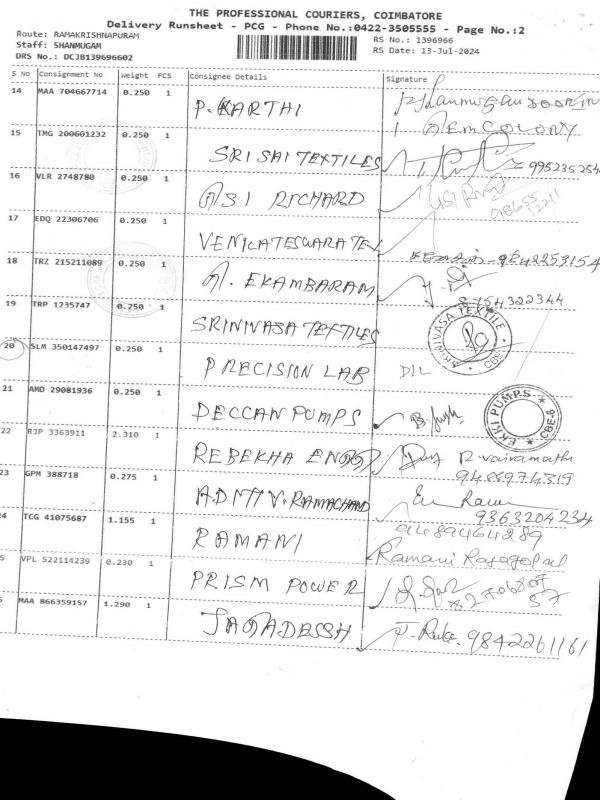 THE PROFESSIONAL COURIERS, COIMBATORE
Delivery Runsheet - PCG - Phone No.:0422-3505555 - Page No.:2
Route: RAMAKRISHNAPURAM
RS No.: 1396966
Staff: SHANMUGAM
RS Date: 13-Jul-2024
DRS No.: DCJB139696602
S No Consignment No Weight PCS Consignee Details Signature
14 MAA 704667714 0.250 1 P. KARTHI
AEM COLONY
15 TMG 200601232 0.250 1 SRI SAI TEXTILES
16 VLR 2748780 0.250 1 ASI RICHARD
17 EDQ 22306706 0.250 1 VENKATESWARA TEX 9842253154
18 TRZ 215211089 0.250 1 A. EKAMBARAM
8754322344
19 TRP 1235747 0.250 1 SRINIVASA TEXTILES
SRINIVASA TEXTILE CBE
20 SLM 350147497 0.250 1 PRECISION LAB DIL
21 AMD 29081936 0.250 1 DECCAN PUMPS
EKKI PUMPS CBE-6
22 RJP 3363911 2.310 1 REBEKHA ENGG R. vairamathi
9488974519
23 GPM 388718 0.275 1 ADMTV. RAMACHAND
9363204234
9489464289
24 TCG 41075687 1.155 1 RAMANI Ramani Rajagopal
5 VPL 522114239 0.230 1 PRISM POWER
MAA 866359157 1.290 1 JAGADESSH 9842261161